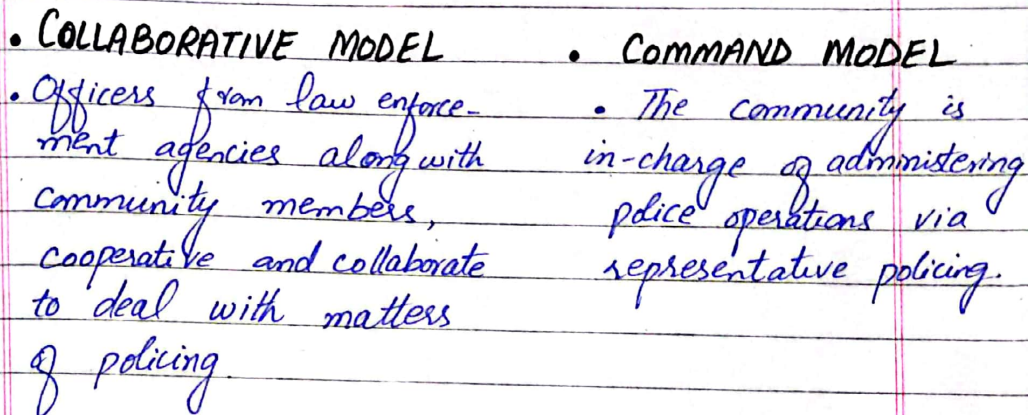 • COLLABORATIVE MODEL
• Officers from law enforce-
ment agencies along with
community members,
cooperative and collaborate
to deal with matters
of policing.
• COMMAND MODEL
• The community is
in-charge of administering
police operations via
representative policing.